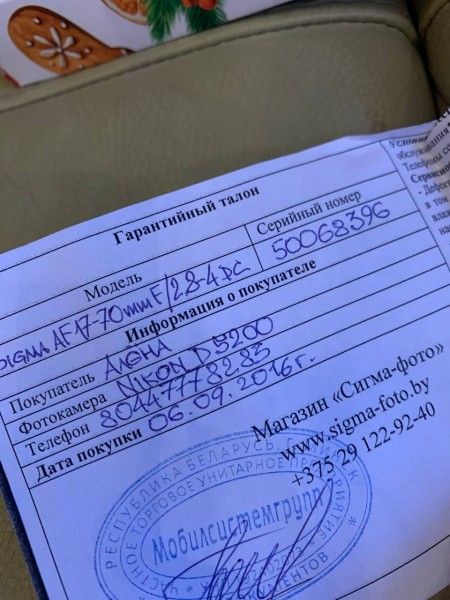 Гарантийный талон
Модель
Серийный номер
Sigma AF 17-70mm F/2.8-4 DC
50068396
Информация о покупателе
Покупатель Алена
Фотокамера NIKON D5200
Телефон 80447778283
Дата покупки 06.09.2016г.
Магазин «Сигма-фото»
www.sigma-foto.by
+375 29 122-92-40
РЕСПУБЛИКА БЕЛАРУСЬ
ЧАСТНОЕ ТОРГОВОЕ УНИТАРНОЕ ПРЕДПРИЯТИЕ
Мобилсистемгрупп
Телефоны
- Дефект
в том